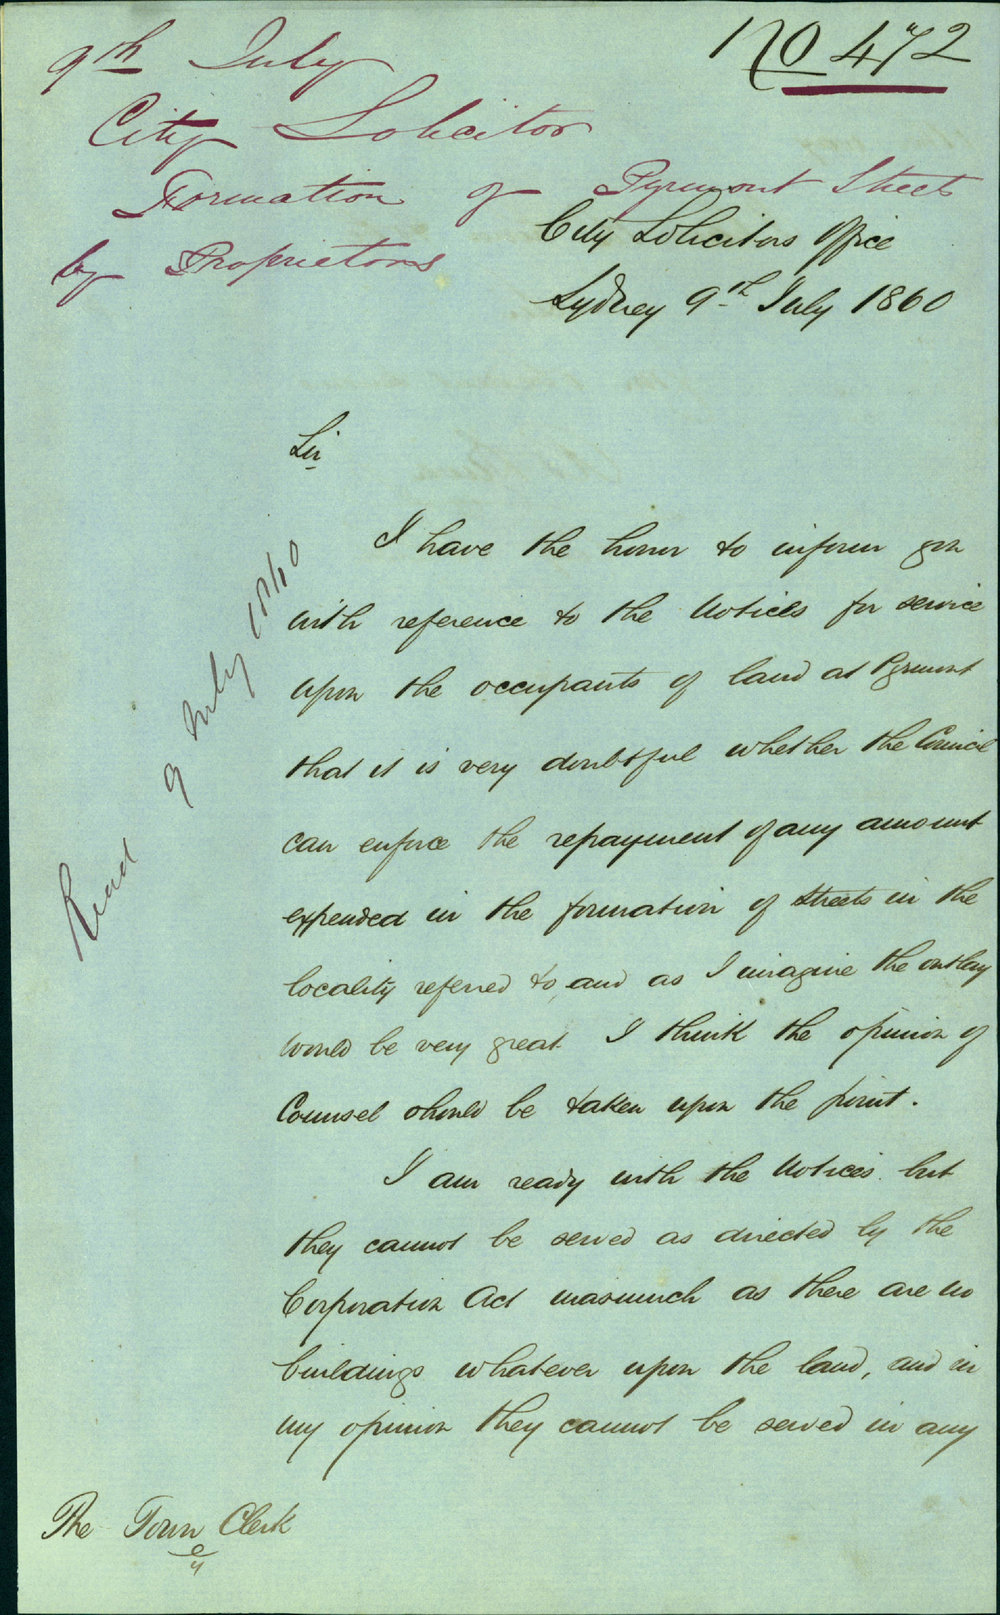 No 472
9th July
City Solicitor
Formation of Pyrmont Streets
by Proprietors
City Solicitors Office
Sydney 9th July 1860
Sir
I have the honor to inform you
with reference to the Notices for service
upon the occupants of land at Pyrmont
that it is very doubtful whether the Council
can enforce the repayment of any amount
expended in the formation of Streets in the
locality referred to, and as I imagine the outlay
would be very great I think the opinion of
Counsel should be taken upon the point.
I am ready with the Notices but
they cannot be served as directed by the
Corporation Act inasmuch as there are no
buildings whatever upon the land, and in
my opinion they cannot be served in any
The Town Clerk
Read 9 July 1860